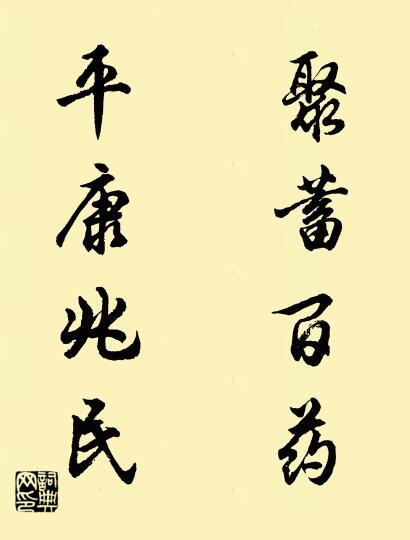 聚蓄百药
平康兆民
詞典網印